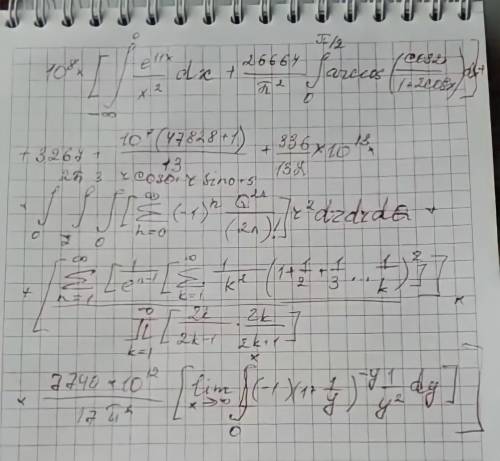 10^8 × [ ∫_{-∞}^{0} e^{1/x}/x^2 dx + 26664/π^2 ∫_{0}^{π/2} arccos (cos x/(1+2cos x)) dx ] +
+ 3267 + 10^4(47828+1)/13 + 336/132 × 10^12 ×
× ∫_{0}^{2π} ∫_{2}^{3} ∫_{0}^{r cosθ + r sinθ + 5} [ ∑_{n=0}^{∞} (-1)^n θ^{2n}/(2n)! ] r^2 dz dr dθ +
+ [ ∑_{n=1}^{∞} [ 1/e^{n-1} [ ∑_{k=1}^{∞} 1/k^2 (1+1/2+1/3...1/k)^2 ] ] ×
∏_{k=1}^{∞} [ 2k/(2k-1) · 2k/(2k+1) ]
× 7740 × 10^12 / 17π^2 [ lim_{x→∞} ∫_{0}^{x} (-1)(1+1/y)^{-y} 1/y^2 dy ] ]